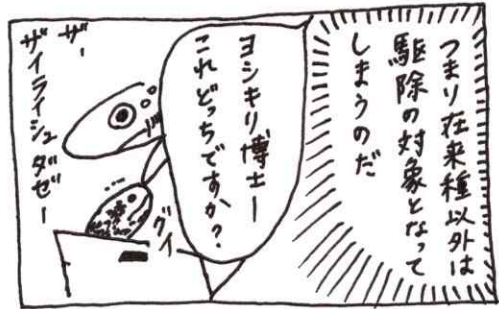 つまり在来種以外は
駆除の対象となって
しまうのだ
ヨシキリ博士ー
これどっちですか?
グイ
ザ、
ザイライシュダゼー